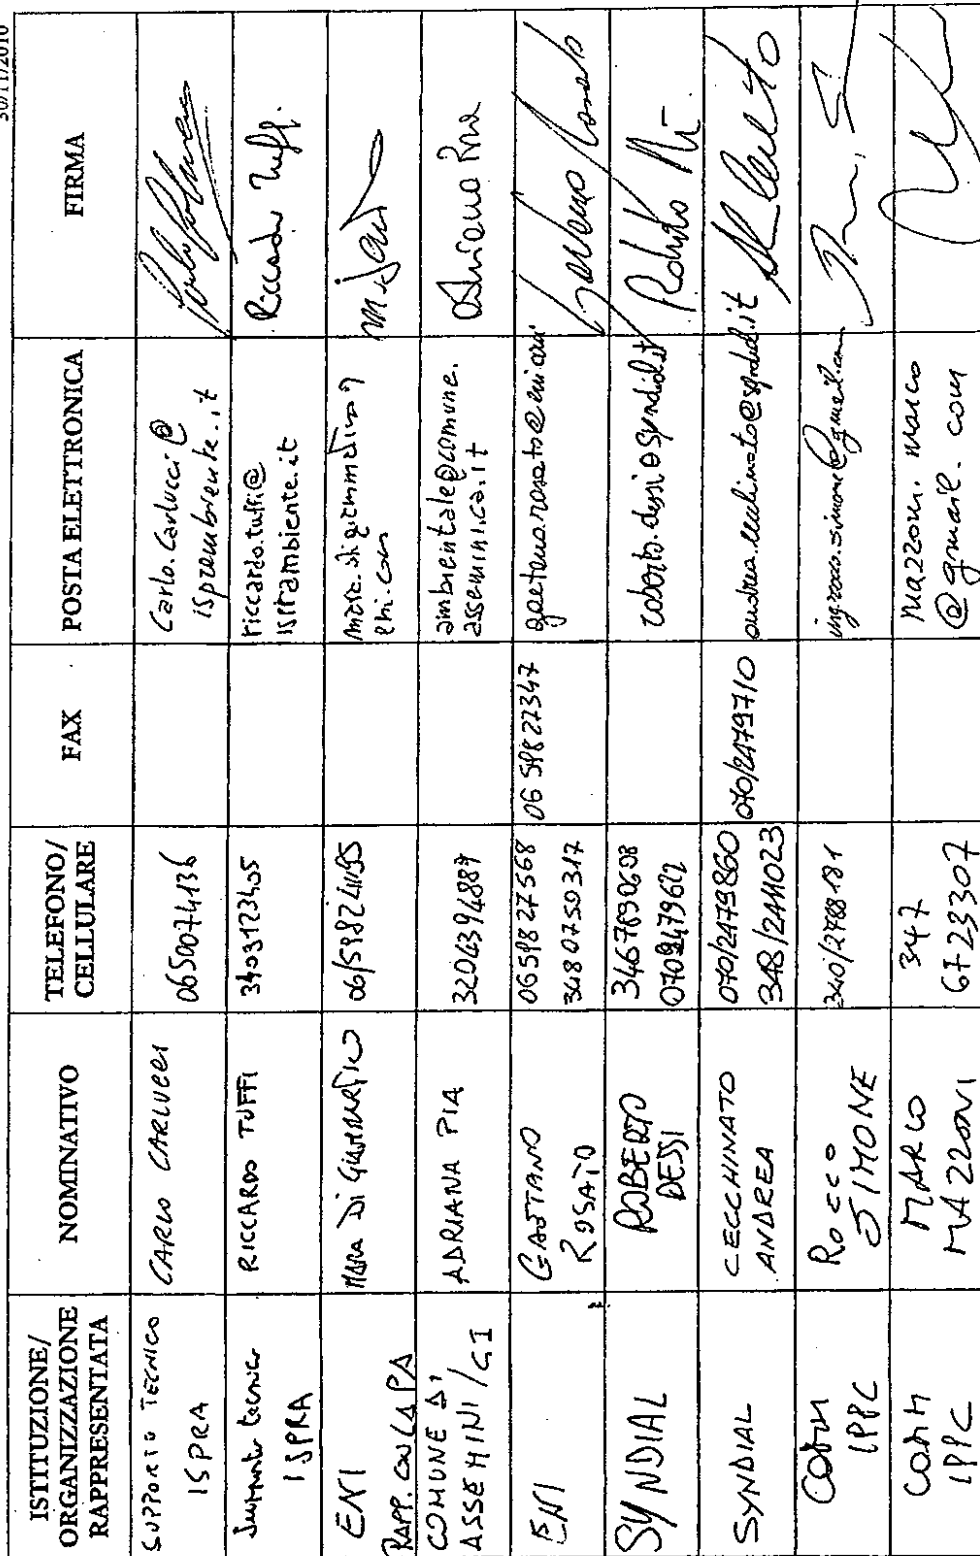 30/11/2010
ISTITUZIONE/
ORGANIZZAZIONE
RAPPRESENTATA
NOMINATIVO
TELEFONO/
CELLULARE
FAX
POSTA ELETTRONICA
FIRMA
SUPPORTO TECNICO
ISPRA
CARLO CARLUCCI
0650074136
Carlo.Carlucci@
isprambiente.it
ISPRA
RICCARDO TUFFI
3403123455
riccardo.tuffi@
isprambiente.it
Riccardo Tuffi
ENI
RAPP. CON LA PA
MARA DI
06/59824095
eni.com
COMUNE DI
ASSEMINI/CI
ADRIANA PIA
3204394887
ambientale@comune.
assemini.ca.it
Adriana Pia
ENI
GAETANO
ROSATO
0659827568
3480750317
06 59822347
gaetano.rosato@eni.com
Gaetano Rosato
SYNDIAL
ROBERTO
DESSI
3467690608
0702479622
roberto.dessi@syndial.it
Roberto
SYNDIAL
CECCHINATO
ANDREA
070/2479860
348/2411023
070/2479710
andrea.cecchinato@syndial.it
COMM
IPPC
ROCCO
SIMONE
340/2788181
ing.rocco.simone@gmail.com
COMM
IPPC
MARCO
MAZZONI
347
6723307
mazzoni.marco
@gmail.com